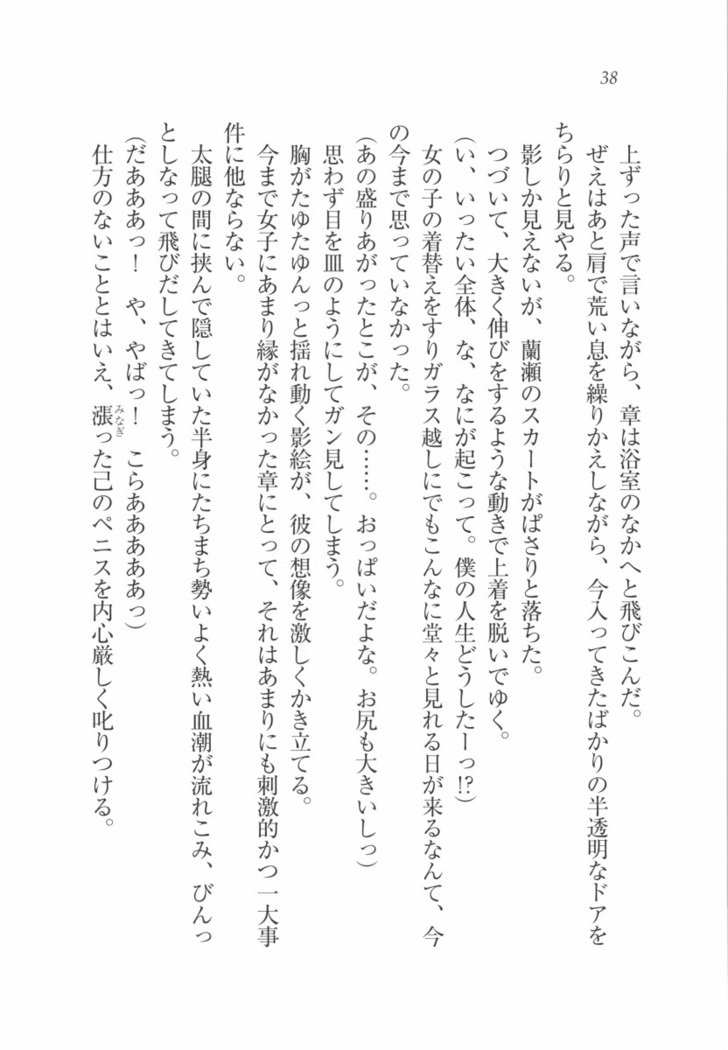 38
上ずった声で言いながら、章は浴室のなかへと飛びこんだ。
ぜえはあと肩で荒い息を繰りかえしながら、今入ってきたばかりの半透明なドアを
ちらりと見やる。
影しか見えないが、蘭瀬のスカートがぱさりと落ちた。
つづいて、大きく伸びをするような動きで上着を脱いでゆく。
(い、いったい全体、な、なにが起こって。僕の人生どうしたーっ!?)
女の子の着替えをすりガラス越しにでもこんなに堂々と見れる日が来るなんて、今
の今まで思っていなかった。
(あの盛りあがったとこが、その……。おっぱいだよな。お尻も大きいしっ)
思わず目を皿のようにしてガン見してしまう。
胸がたゆたゆんっと揺れ動く影絵が、彼の想像を激しくかき立てる。
今まで女子にあまり縁がなかった章にとって、それはあまりにも刺激的かつ一大事
件に他ならない。
太腿の間に挟んで隠していた半身にたちまち勢いよく熱い血潮が流れこみ、びんっ
としなって飛びだしてきてしまう。
(だあああっ!　や、やばっ!　こらああああああっ)
仕方のないこととはいえ、漲った己のペニスを内心厳しく叱りつける。
みなぎ